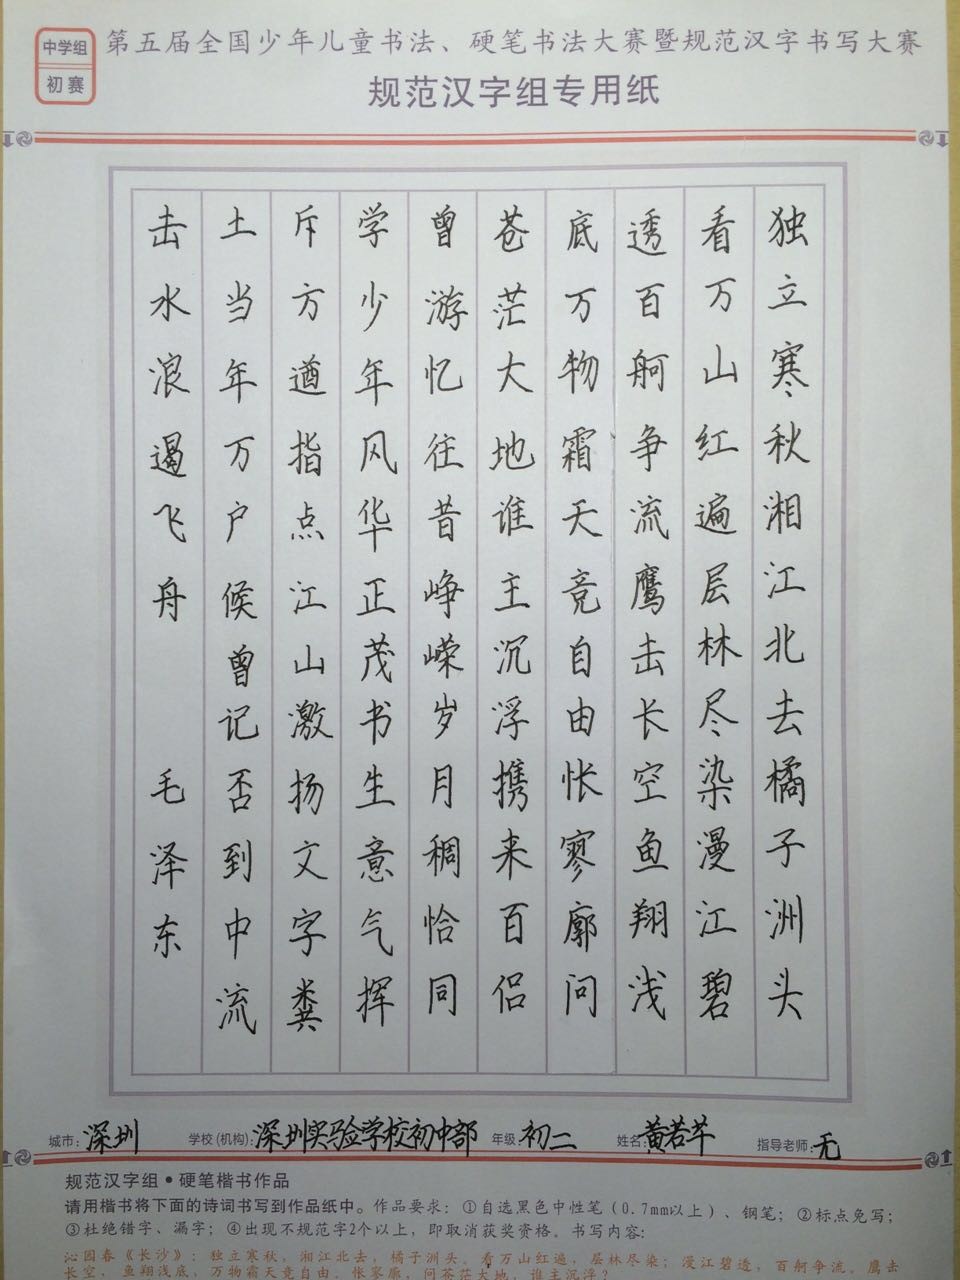 中学组
初赛
第五届全国少年儿童书法、硬笔书法大赛暨规范汉字书写大赛
规范汉字组专用纸
独立寒秋湘江北去橘子洲头
看万山红遍层林尽染漫江碧
透百舸争流鹰击长空鱼翔浅
底万物霜天竞自由怅寥廓问
苍茫大地谁主沉浮携来百侣
曾游忆往昔峥嵘岁月稠恰同
学少年风华正茂书生意气挥
斥方遒指点江山激扬文字粪
土当年万户候曾记否到中流
击水浪遏飞舟 毛泽东
城市:深圳 学校(机构):深圳实验学校初中部 年级:初二 姓名:黄若芊 指导老师:无
规范汉字组·硬笔楷书作品
请用楷书将下面的诗词书写到作品纸中。作品要求:①自选黑色中性笔(0.7mm以上)、钢笔;②标点免写;
③杜绝错字、漏字;④出现不规范字2个以上,即取消获奖资格。书写内容:
沁园春《长沙》:独立寒秋,湘江北去,橘子洲头。看万山红遍,层林尽染;漫江碧透,百舸争流。鹰击
长空,鱼翔浅底,万物霜天竞自由。怅寥廓,问苍茫大地,谁主沉浮?